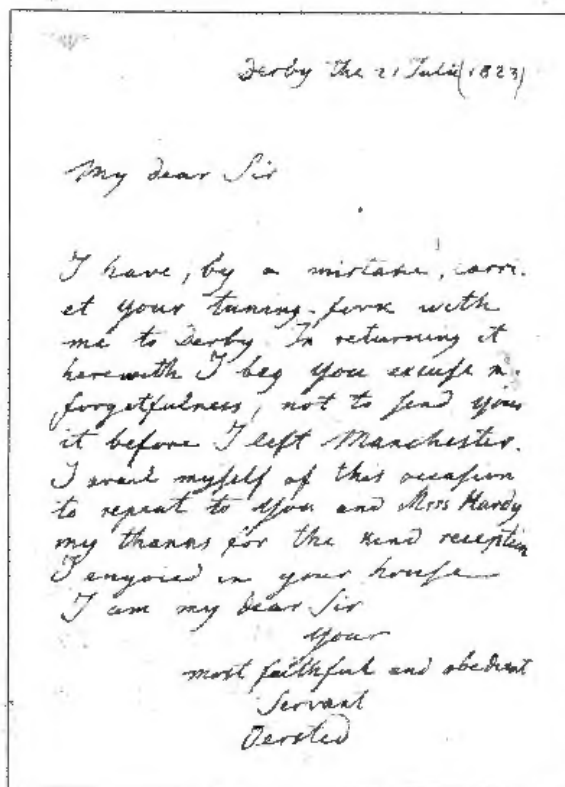 Derby the 21 Julii (1823)
My dear Sir
I have, by a mistake, carri-
et your tuning-fork with
me to Derby. In returning it
herewith I beg you excuse m.
forgetfulness, not to send you
it before I left Manchester.
I avail myself of this occasion
to repeat to you and Miss Hardy
my thanks for the kind reception
I enyoied in your house
I am my dear Sir
your
most faithful and obedient
Servant
Oersted